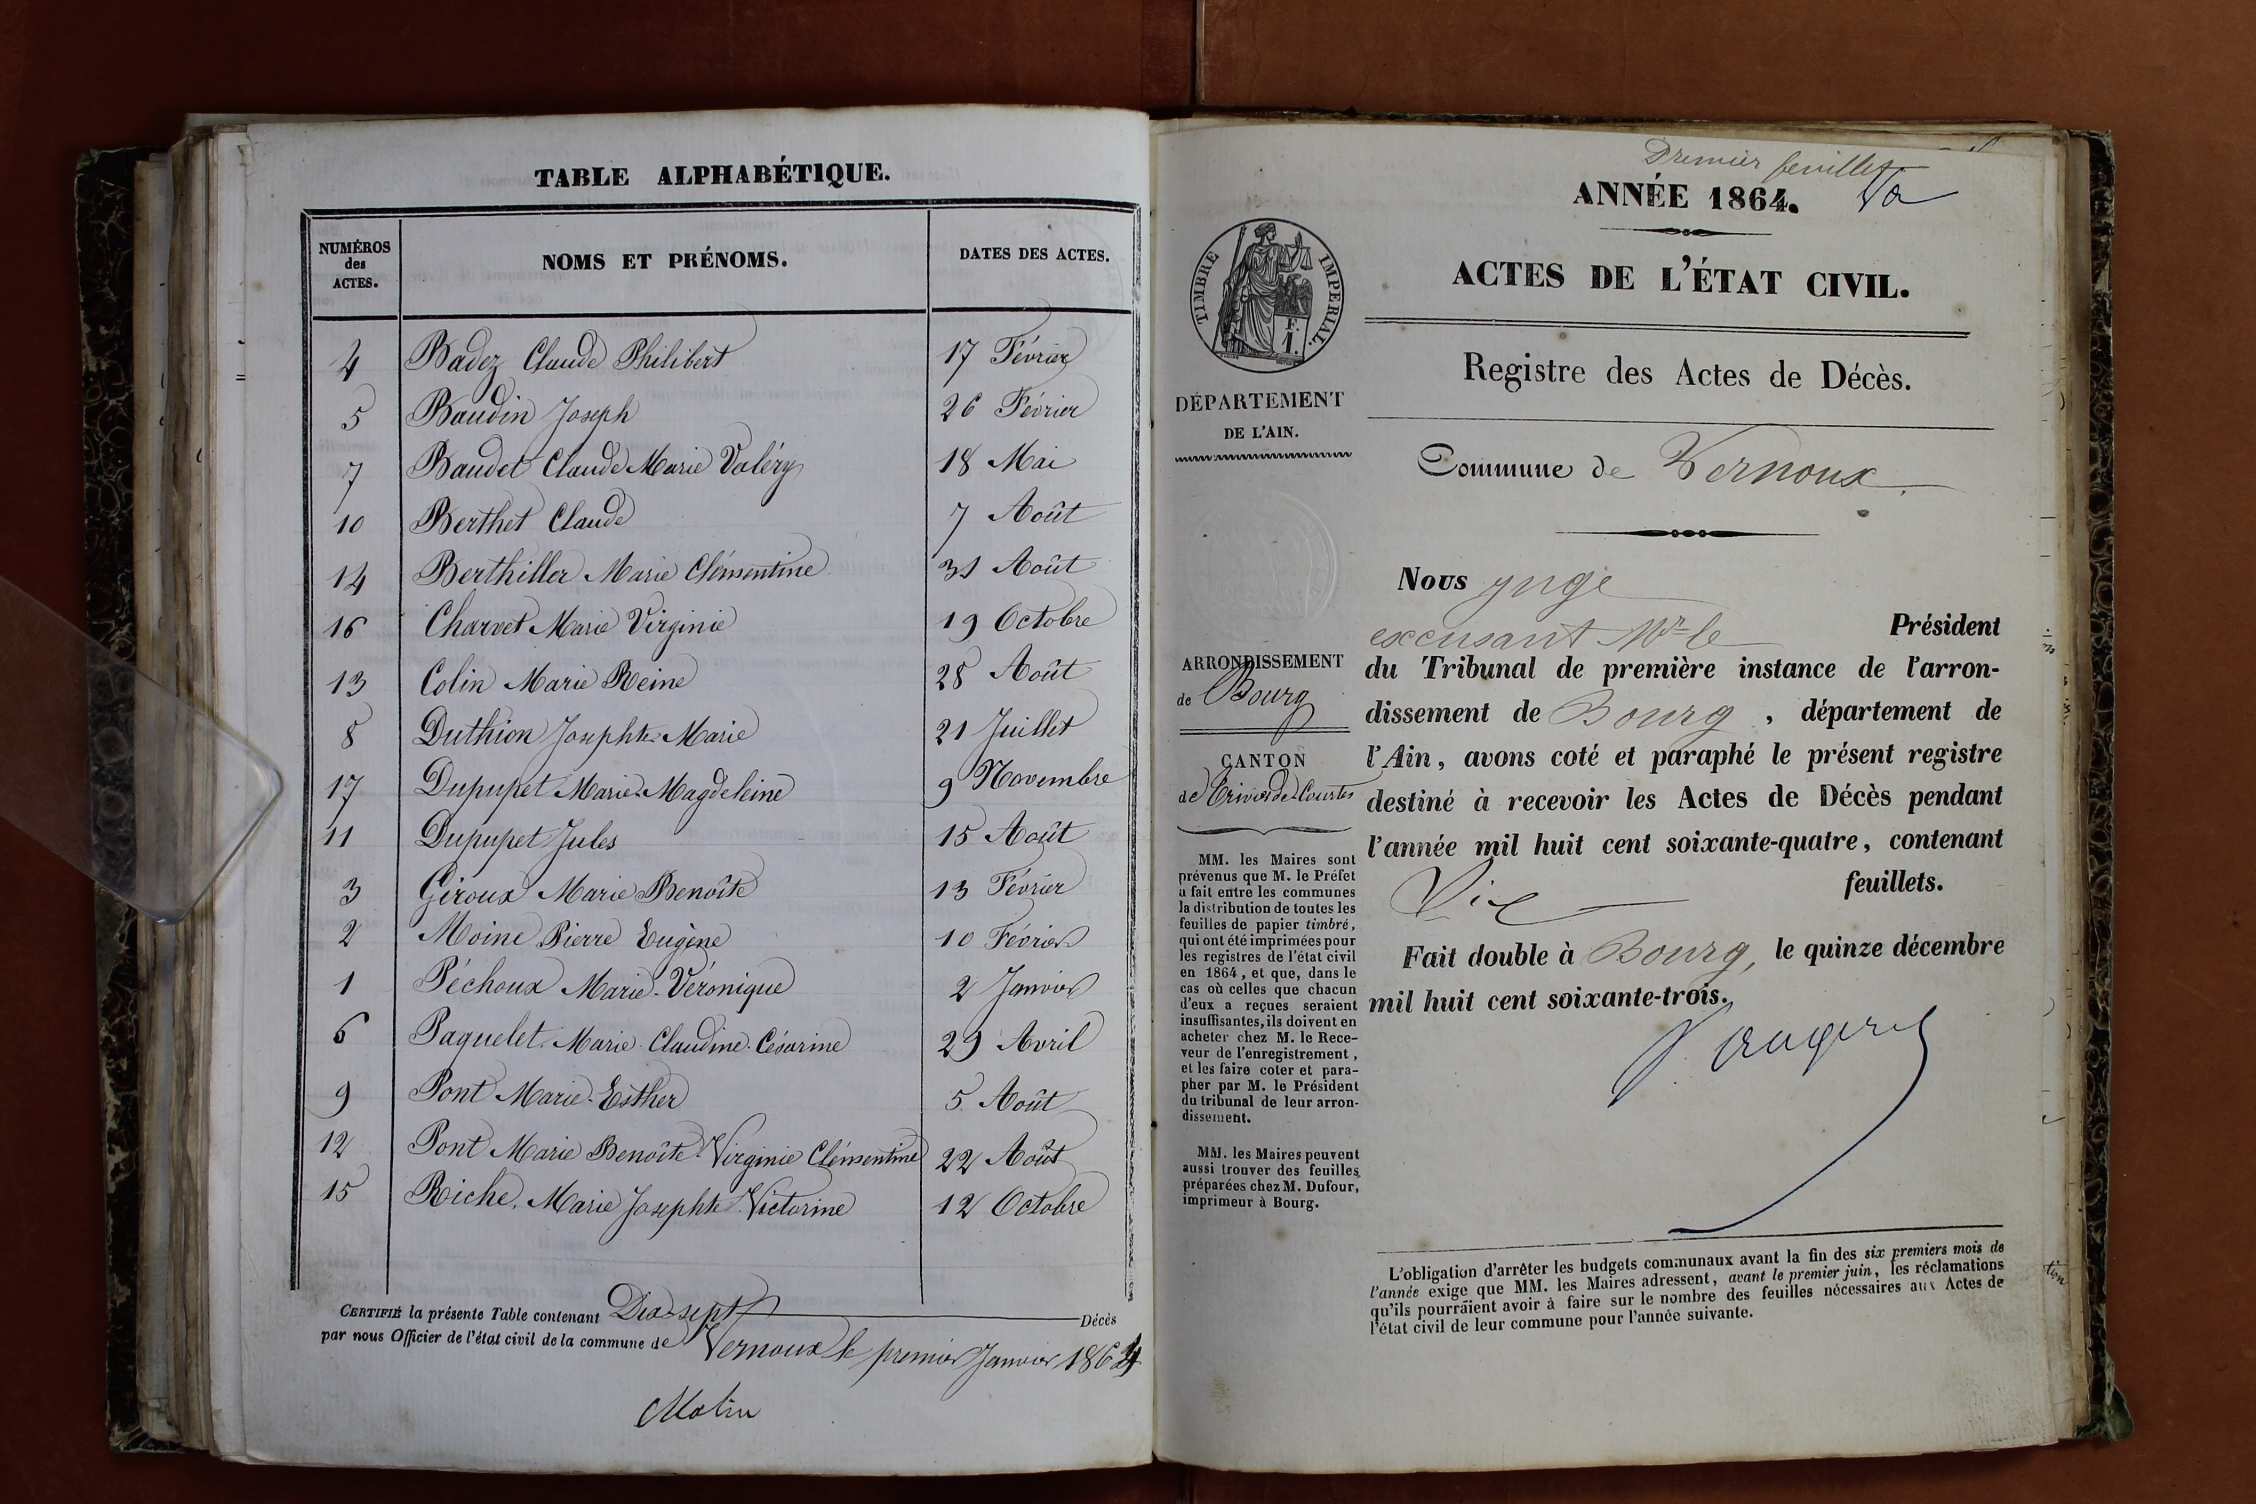 TABLE ALPHABÉTIQUE.
NUMÉROS des ACTES. NOMS ET PRÉNOMS. DATES DES ACTES.
4 Badez Claude Philibert 17 Février
5 Baudin Joseph 26 Février
7 Baudet Claude Marie Valéry 18 Mai
10 Berthet Claude 7 Août
14 Berthiller Marie Clémentine 31 Août
16 Charvet Marie Virginie 19 Octobre
13 Colin Marie Reine 28 Août
8 Duthion Josephte Marie 21 Juillet
17 Dupupet Marie-Magdeleine 9 Novembre
11 Dupupet Jules 15 Août
3 Giroux Marie Benoîte 13 Février
2 Moine Pierre Eugène 10 Février
1 Péchoux Marie-Véronique 2 Janvier
6 Paquelet Marie-Claudine-Césarine 29 Avril
9 Pont Marie-Esther 5 Août
12 Pont Marie Benoîte Virginie Clémentine 22 Août
15 Riche Marie Josephte Victorine 12 Octobre
CERTIFIÉ la présente Table contenant Dix-sept Décès
par nous Officier de l'état civil de la commune de Vernoux le premier Janvier 1864
Premier feuillet
ANNÉE 1864.
ACTES DE L'ÉTAT CIVIL.
Registre des Actes de Décès.
Commune de Vernoux
TIMBRE IMPÉRIAL.
F.
1.
DÉPARTEMENT
DE L'AIN.
ARRONDISSEMENT
de Bourg
CANTON
de St Trivier de Courtes
MM. les Maires sont
prévenus que M. le Préfet
a fait entre les communes
la distribution de toutes les
feuilles de papier timbré,
qui ont été imprimées pour
les registres de l'état civil
en 1864, et que, dans le
cas où celles que chacun
d'eux a reçues seraient
insuffisantes, ils doivent en
acheter chez M. le Rece-
veur de l'enregistrement,
et les faire coter et para-
pher par M. le Président
du tribunal de leur arron-
dissement.
MM. les Maires peuvent
aussi trouver des feuilles
préparées chez M. Dufour,
imprimeur à Bourg.
Nous juge
excusant Mr le Président
du Tribunal de première instance de l'arron-
dissement de Bourg, département de
l'Ain, avons coté et paraphé le présent registre
destiné à recevoir les Actes de Décès pendant
l'année mil huit cent soixante-quatre, contenant
Dix feuillets.
Fait double à Bourg, le quinze décembre
mil huit cent soixante-trois.
L'obligation d'arrêter les budgets communaux avant la fin des six premiers mois de
l'année exige que MM. les Maires adressent, avant le premier juin, les réclamations
qu'ils pourraient avoir à faire sur le nombre des feuilles nécessaires aux Actes de
l'état civil de leur commune pour l'année suivante.